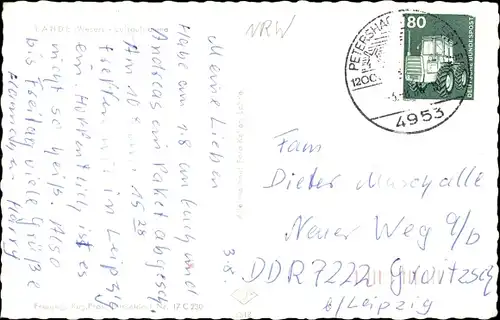 NRW
3.8.
Meine Lieben
Habe am 1.8 an Euch und
Andreas ein Paket abgesch.
Am 10.8 um 15 28
treffen wir in Leipzig
ein. Hoffentlich ist es
nicht so heiß. Also
bis Freitag viele Grüße
Harry
80
DEUTSCHE BUNDESPOST
PETERSHAGEN
1200
4953
Fam
Dieter Muschalle
Neuer Weg 9/b
DDR 7222 Groitzsch
b/Leipzig
Nr. 17 C 220